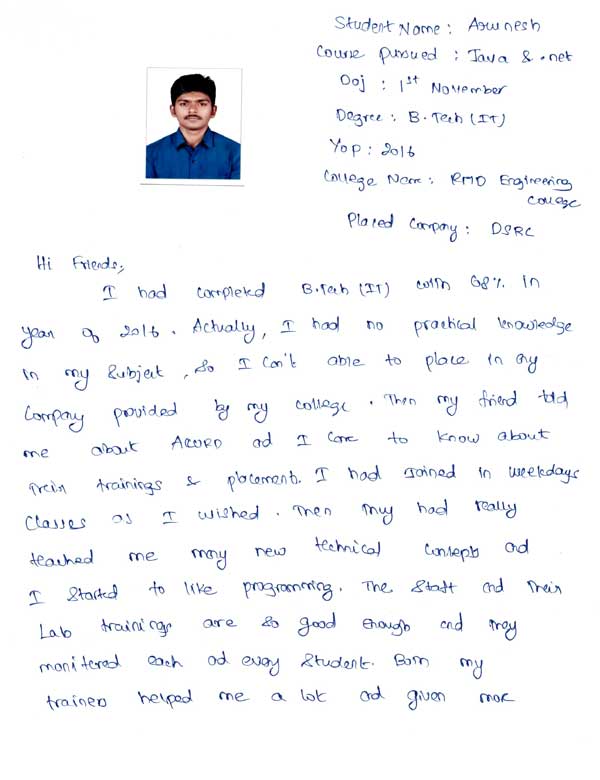 Student Name : Aswinesh
Course pursued : Java & .net
Doj : 1st November
Degree : B.Tech (IT)
Yop : 2016
College Name : RMD Engineering
College
Placed Company : DSRC
Hi Friends,
I had completed B.Tech (IT) with 68% in
year of 2016. Actually, I had no practical knowledge
in my subject, so I can't able to place in any
Company provided by my college. Then my friend told
me about and I came to know about
their trainings & placement. I had Joined in weekdays
Classes as I wished. Then they had really
teached me many new technical concepts and
I started to like programming. The Staff and their
Lab trainings are so good enough and they
monitered each and every student. Both my
trainers helped me a lot and given more